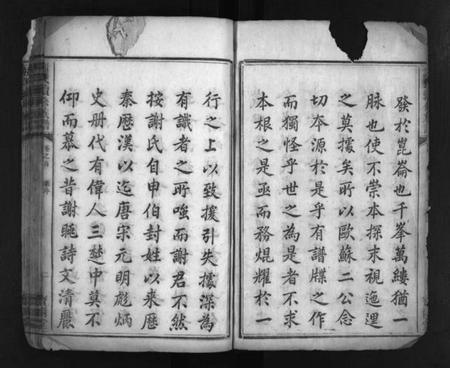 發於崑崙也千峯萬縷猶一
脉也使不崇本探末視迤邐
之莫據矣所以歐蘇二公念
切本源於是乎有譜牒之作
而獨怪乎世之為是者不求
本根之是亟而務焜耀於一
行之上以致援引失據深為
有識者之所嗤而謝君不然
按謝氏自申伯封姓以来歷
秦歷漢以迄唐宋元明彪炳
史册代有偉人三楚中莫不
仰而慕之昔謝眺詩文清麗